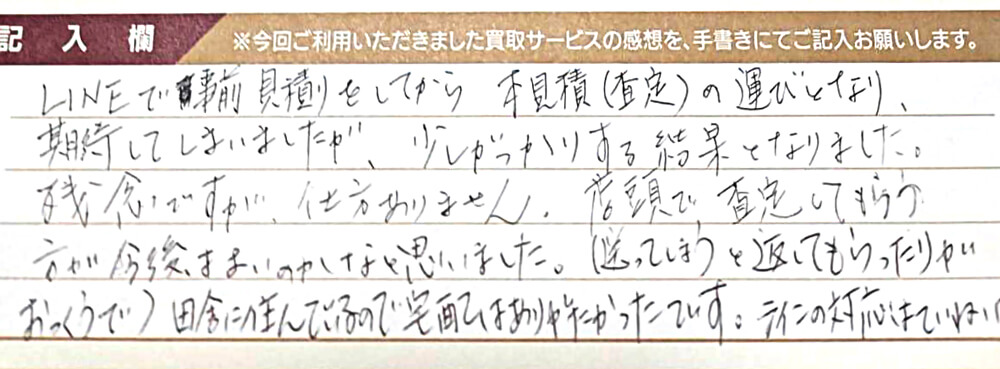 記入欄 ※今回ご利用いただきました買取サービスの感想を、手書きにてご記入お願いします。
LINEで事前見積りをしてから 本見積(査定)の運びとなり、
期待してしまいましたが、少しがっかりする結果となりました。
残念ですが、仕方ありません。店頭で、査定してもらう
方が今後、いいのかなと思いました。(送ってしまうと返してもらったりが
おっくうで)田舎に住んでいるので宅配はありがたかったです。ラインの対応はていねい